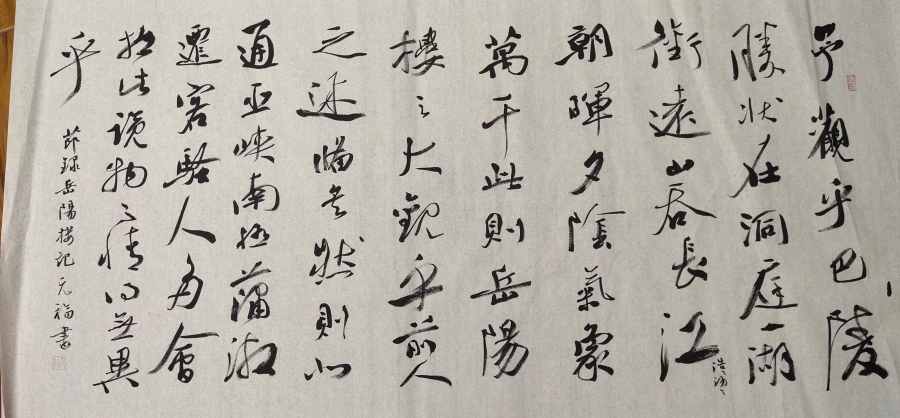 予觀乎巴陵
勝狀在洞庭一湖
銜遠山吞長江
浩湯
朝暉夕陰氣象
萬千此則岳陽
樓之大觀乎前人
之述備矣然則北
通巫峽南極瀟湘
遷客騷人多會
於此覽物之情得無異
乎
節録岳陽樓記 元福書